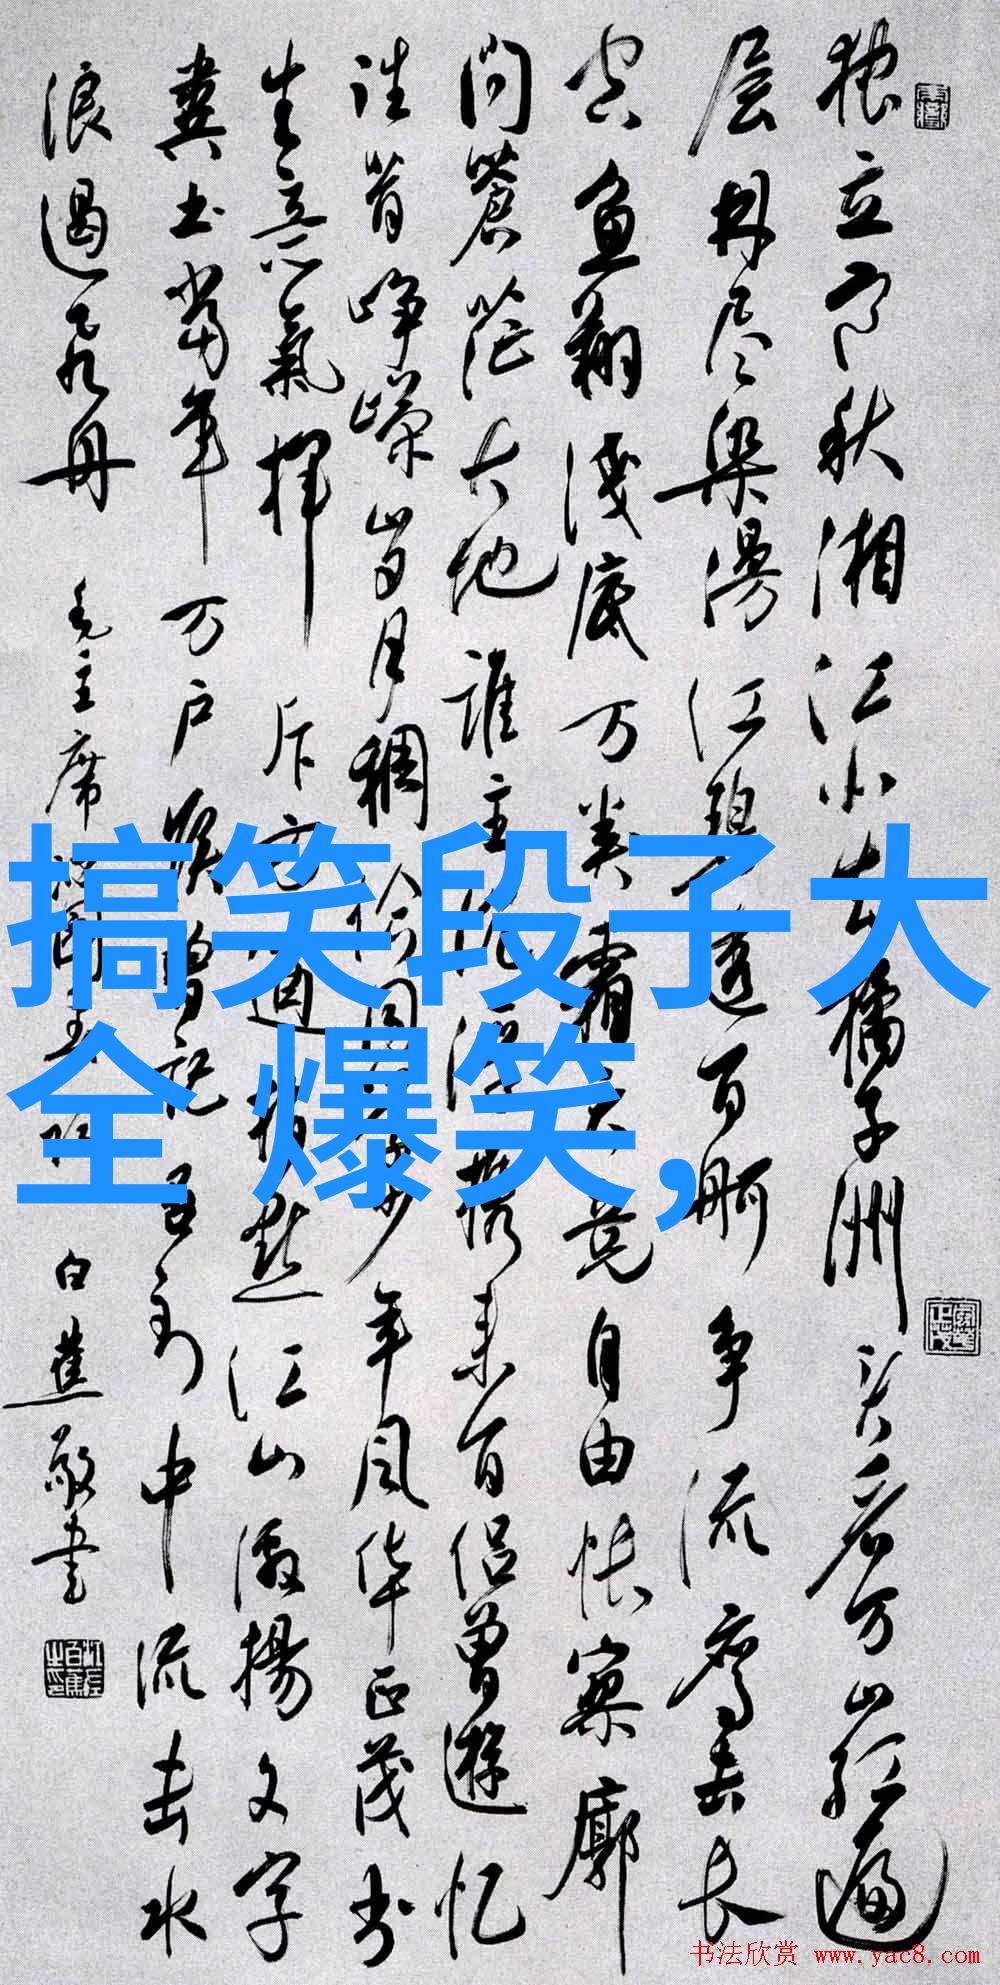 独立寒秋湘江北去橘子洲头看万山红遍
层林尽染漫江碧透百舸争流鹰击长
空鱼翔淺底万类霜天竞自由怅寥廓
问蒼茫大地誰主沉浮携来百侣曾遊忆
往昔峥嵘岁月稠恰同学少年风华正茂书
生意氣挥斥方遒指点江山激揚文字
粪土当年万户侯曾记否到中流击水
浪遏飞舟 毛主席沁园春长沙 白蕉敬书
搞笑段子大
全 爆笑,
书法欣赏 www.yac8.com